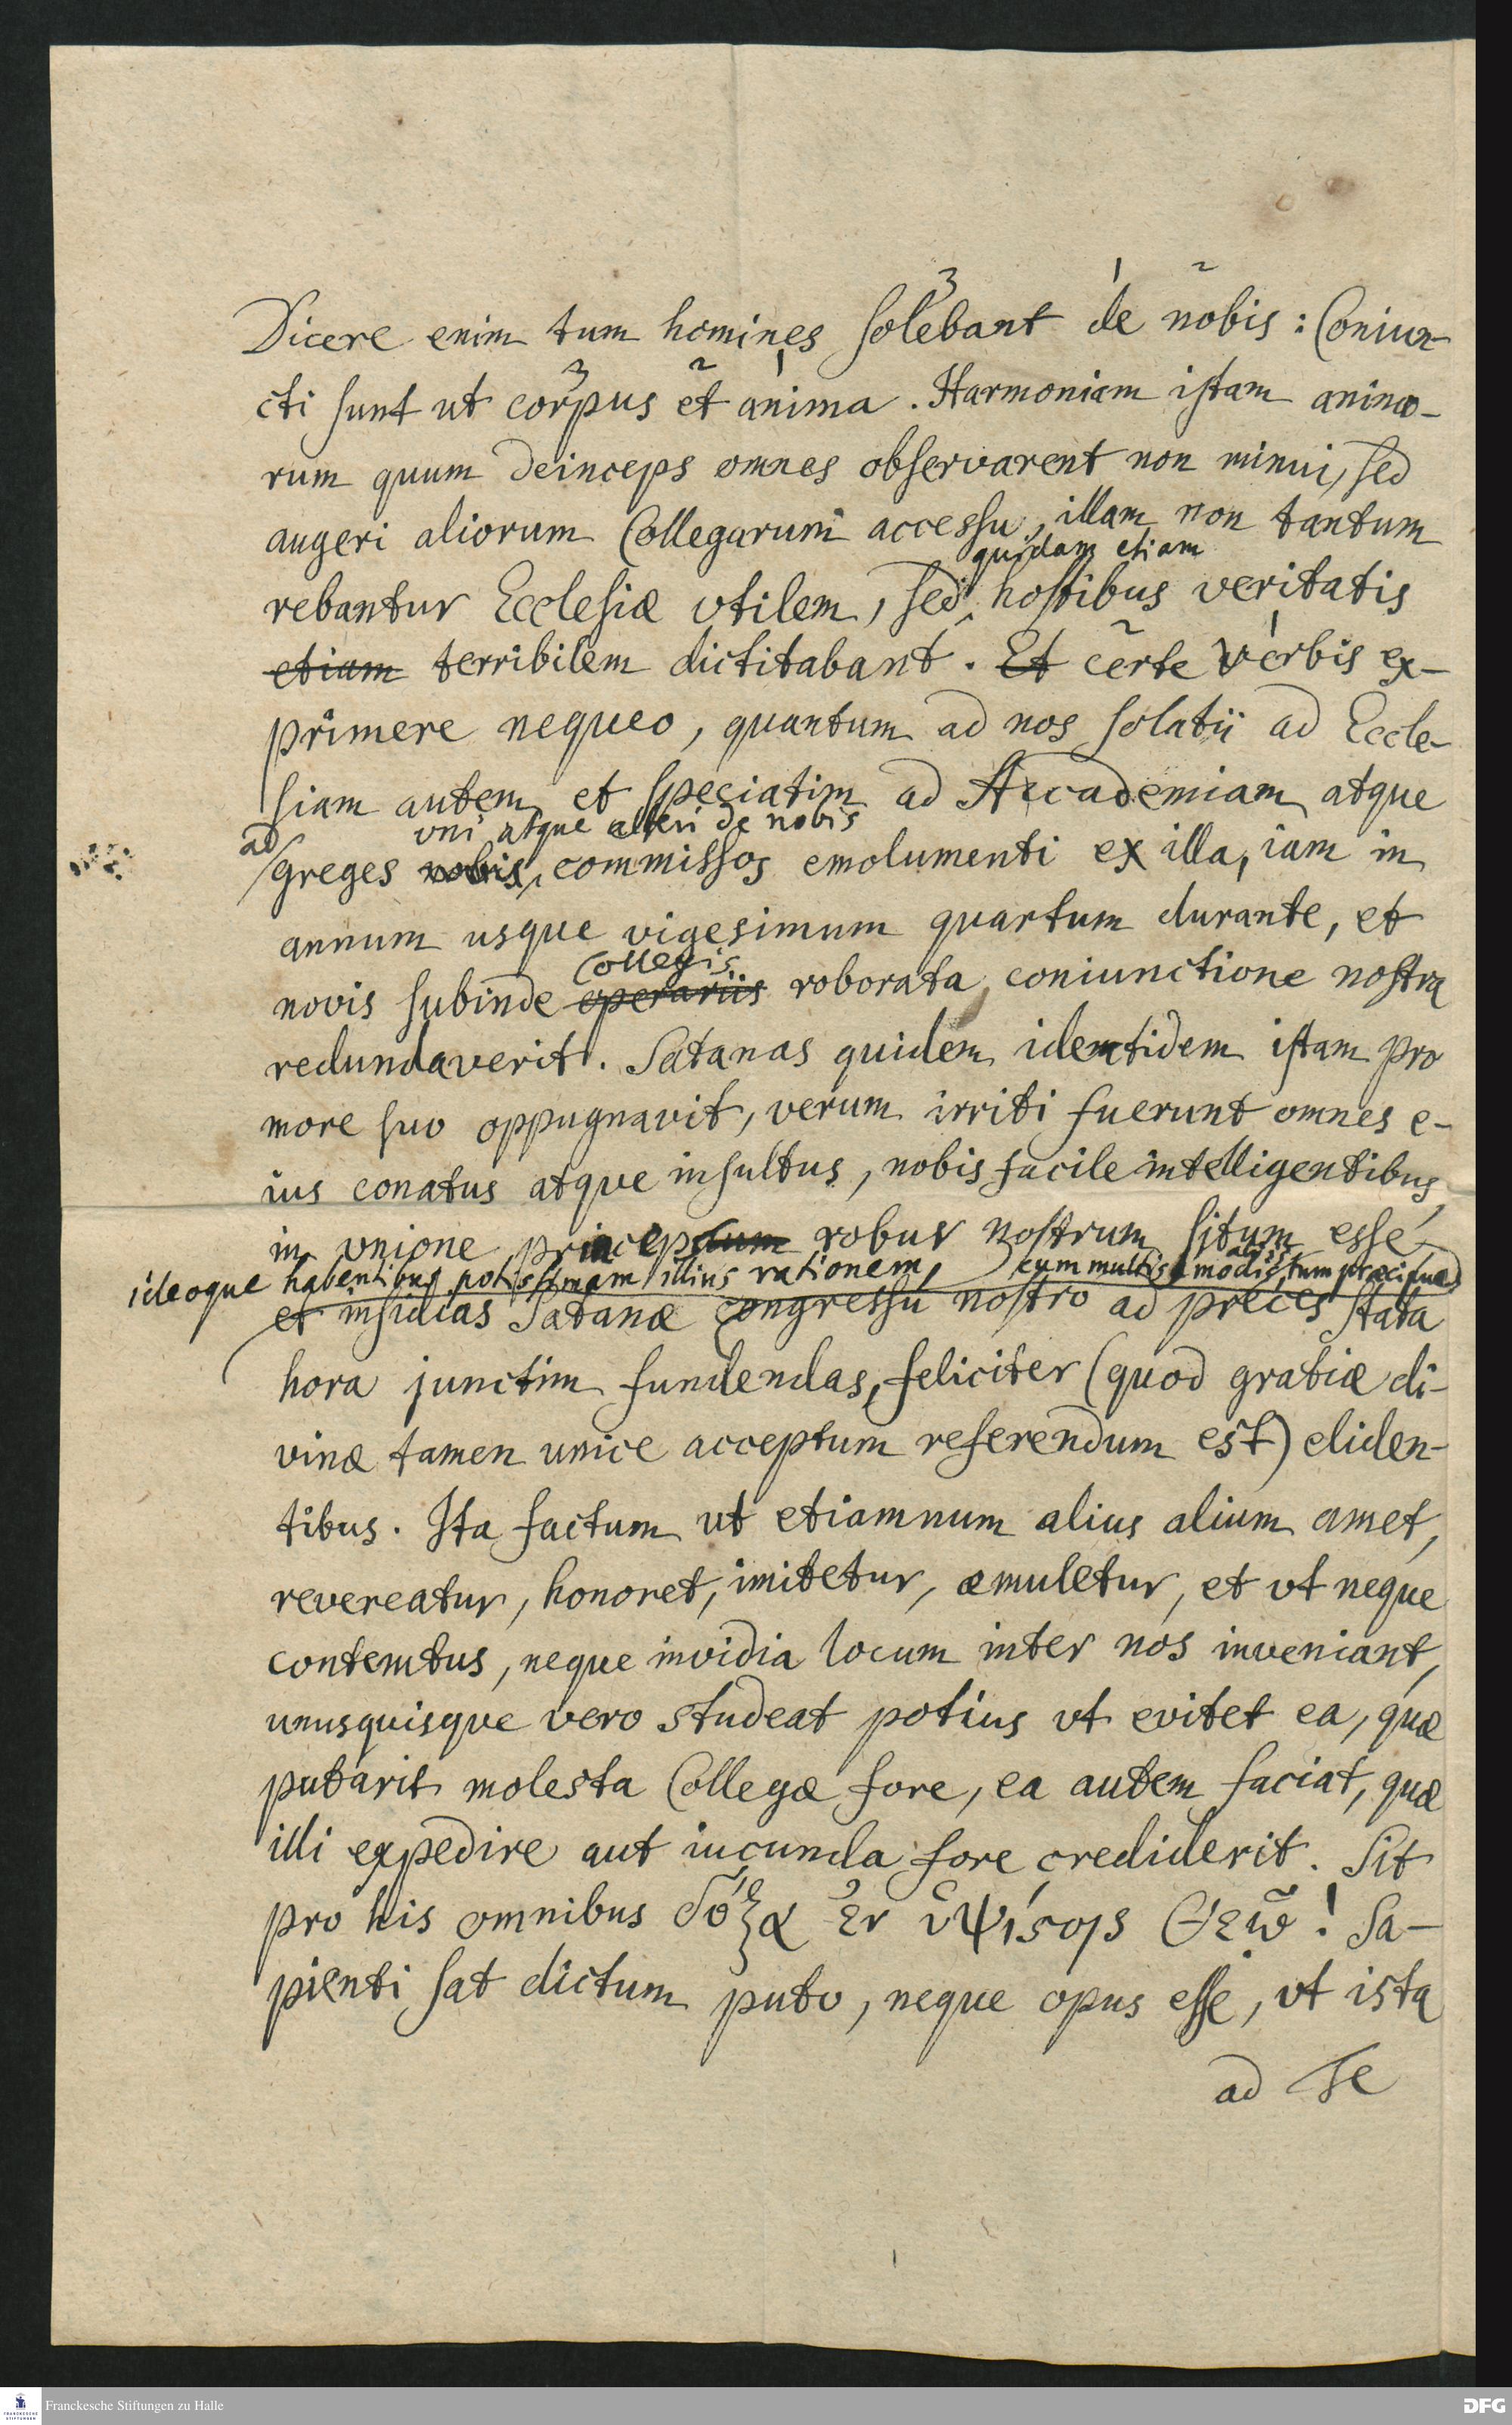 3 1 2
Dicere enim tum homines solebant de nobis: Coniun-
3 2 1
cti sunt ut corpus et anima. Harmoniam istam animo-
rum quum deinceps omnes observarent non minui, sed
augeri aliorum Collegarum accessu, illam non tantum
quidam etiam
rebantur Ecclesiæ vtilem, sed hostibus veritatis
2 1
etiam terribilem dictitabant. Et certe verbis ex-
primere nequeo, quantum ad nos solatii ad Eccle-
siam autem et speciatim ad Accademiam atque
ad uni atque alteri de nobis
greges nobis commissos emolumenti ex illa, iam in
annum usque vigesimum quartum durante, et
Collegis
novis subinde operariis roborata coniunctione nostra
redundaverit. Satanas quidem identidem istam pro
more suo oppugnavit, verum irriti fuerunt omnes e-
ius conatus atque insultus, nobis facile intelligentibus
in unione princeps robur nostrum situm esse,
ideoque habentibus potissimam illius rationem, cum multis aliis modis, tum præcipue
et insidias Satanæ congressu nostro ad preces stata
hora junctim fundendas, feliciter (quod gratiæ di-
vinæ tamen unice acceptum referendum est) eliden-
tibus. Ita factum ut etiamnum alius alium amet,
revereatur, honoret, imitetur, æmuletur, et vt neque
contemtus, neque invidia locum inter nos inveniant,
unusquisque vero studeat potius vt evitet ea, quæ
putarit molesta Collegæ fore, ea autem faciat, quæ
illi expedire aut iucunda fore crediderit. Sit
pro his omnibus δόξα ἐν ὑψίϛοις Θεῷ! Sa-
pienti sat dictum puto, neque opus esse, vt ista
ad Te
Franckesche Stiftungen zu Halle
DFG